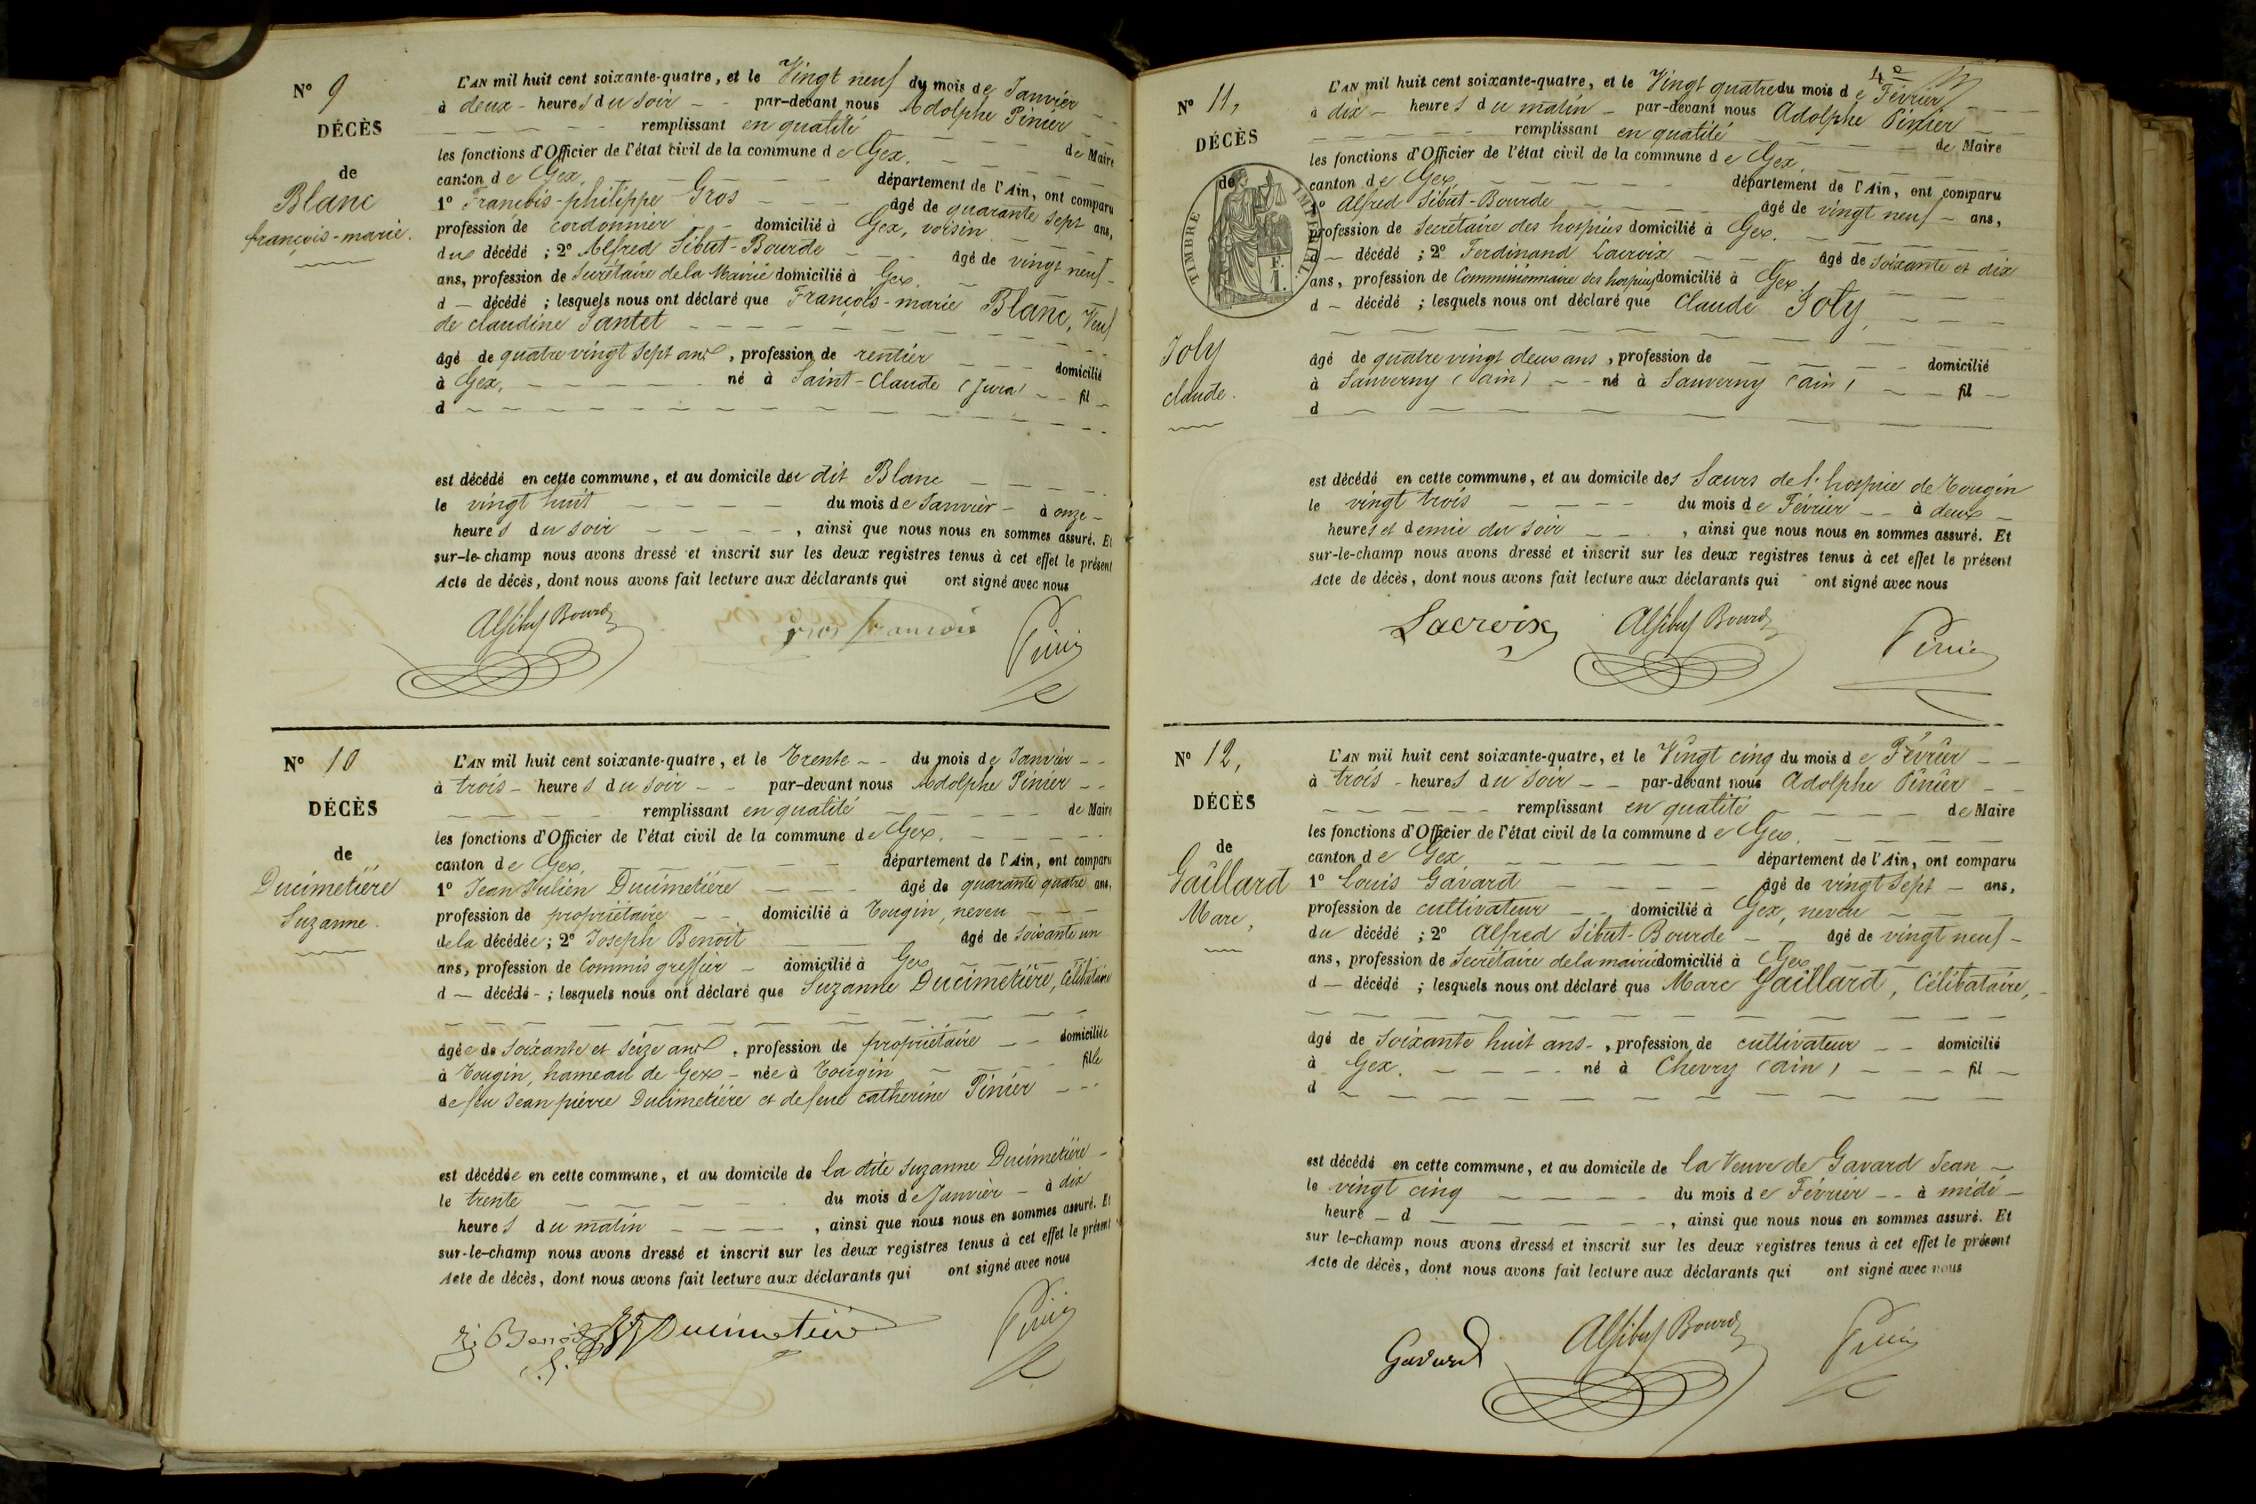 N° 9
DÉCÈS
de
Blanc
françois-marie.
L'AN mil huit cent soixante-quatre, et le Vingt neuf du mois de Janvier
à deux - heures du soir - - par-devant nous Adolphe Pinier
remplissant en qualité de Maire
les fonctions d'Officier de l'état civil de la commune de Gex.
canton de Gex, département de l'Ain, ont comparu
1° François-philippe Gros âgé de quarante sept ans,
profession de cordonnier domicilié à Gex, voisin
du décédé ; 2° Alfred Sibut-Bourde âgé de vingt neuf
ans, profession de Secrétaire de la Mairie domicilié à Gex.
d — décédé ; lesquels nous ont déclaré que François-marie Blanc, Veuf
de claudine Santet
âgé de quatre vingt sept ans, profession de rentier domicilié
à Gex, né à Saint-Claude (Jura) fil
d
est décédé en cette commune, et au domicile du dit Blanc
le vingt huit du mois de Janvier - à onze -
heures du soir , ainsi que nous nous en sommes assuré. Et
sur-le-champ nous avons dressé et inscrit sur les deux registres tenus à cet effet le présent
Acte de décès, dont nous avons fait lecture aux déclarants qui ont signé avec nous
Alf Sibut Bourde gros francois Pinier
N° 10
DÉCÈS
de
Ducimetière
Suzanne.
L'AN mil huit cent soixante-quatre, et le Trente - - du mois de Janvier - -
à trois - heures du soir - - par-devant nous Adolphe Pinier - -
remplissant en qualité de Maire
les fonctions d'Officier de l'état civil de la commune de Gex.
canton de Gex, département de l'Ain, ont comparu
1° Jean Julien Ducimetière âgé de quarante quatre ans,
profession de propriétaire domicilié à Tougin, neveu
de la décédée; 2° Joseph Benoit âgé de Soixante un
ans, profession de Commis greffier domicilié à Gex
d — décédé - ; lesquels nous ont déclaré que Suzanne Ducimetière, Célibataire
âgée de Soixante et Seize ans, profession de propriétaire domiciliée
à Tougin, hameau de Gex - née à Tougin fille
de feu Jean pierre Ducimetière et de feue catherine Pinier
est décédée en cette commune, et au domicile de la dite Suzanne Ducimetière
le trente du mois de Janvier - à dix
heures du matin , ainsi que nous nous en sommes assuré. Et
sur-le-champ nous avons dressé et inscrit sur les deux registres tenus à cet effet le présent
Acte de décès, dont nous avons fait lecture aux déclarants qui ont signé avec nous
Benoit Ducimetière Pinier
4e
N° 11,
DÉCÈS
de
TIMBRE IMPERIAL.
F.
1.
Joly
claude.
L'AN mil huit cent soixante-quatre, et le Vingt quatre du mois de Février
à dix - heures du matin - par-devant nous Adolphe Pinier
remplissant en qualité de Maire
les fonctions d'Officier de l'état civil de la commune de Gex
canton de Gex, département de l'Ain, ont comparu
1° Alfred Sibut-Bourde âgé de vingt neuf - ans,
profession de Secrétaire des hospices domicilié à Gex.
— décédé ; 2° Ferdinand Lacroix âgé de soixante et dix
ans, profession de Commissionnaire des hospices domicilié à Gex
d — décédé ; lesquels nous ont déclaré que Claude Joly,
âgé de quatre vingt deux ans, profession de domicilié
à Sauverny (ain) - - né à Sauverny (ain) fil
d
est décédé en cette commune, et au domicile des Sœurs de l'hospice de Tougin
le vingt trois du mois de Février - - à deux
heures et demie du soir , ainsi que nous nous en sommes assuré. Et
sur-le-champ nous avons dressé et inscrit sur les deux registres tenus à cet effet le présent
Acte de décès, dont nous avons fait lecture aux déclarants qui ont signé avec nous
Lacroix Alf Sibut Bourde Pinier
N° 12,
DÉCÈS
de
Gaillard
Marc,
L'AN mil huit cent soixante-quatre, et le Vingt cinq du mois de Février - -
à trois - heures du soir - - par-devant nous Adolphe Pinier - -
remplissant en qualité de Maire
les fonctions d'Officier de l'état civil de la commune de Gex.
canton de Gex, département de l'Ain, ont comparu
1° Louis Gavard âgé de vingt sept - ans,
profession de cultivateur domicilié à Gex, neveu
du décédé ; 2° Alfred Sibut-Bourde âgé de vingt neuf -
ans, profession de Secrétaire de la mairie domicilié à Gex
d — décédé ; lesquels nous ont déclaré que Marc Gaillard, Célibataire,
âgé de Soixante huit ans -, profession de cultivateur - - domicilié
à Gex. né à Chevry (ain) fil
d
est décédé en cette commune, et au domicile de la Veuve de Gavard Jean
le vingt cinq du mois de Février - - à midi -
heure - d , ainsi que nous nous en sommes assuré. Et
sur le-champ nous avons dressé et inscrit sur les deux registres tenus à cet effet le présent
Acte de décès, dont nous avons fait lecture aux déclarants qui ont signé avec nous
Gavard Alf Sibut Bourde Pinier